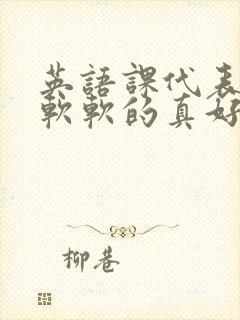 英語課代表
軟軟的真好
柳巷